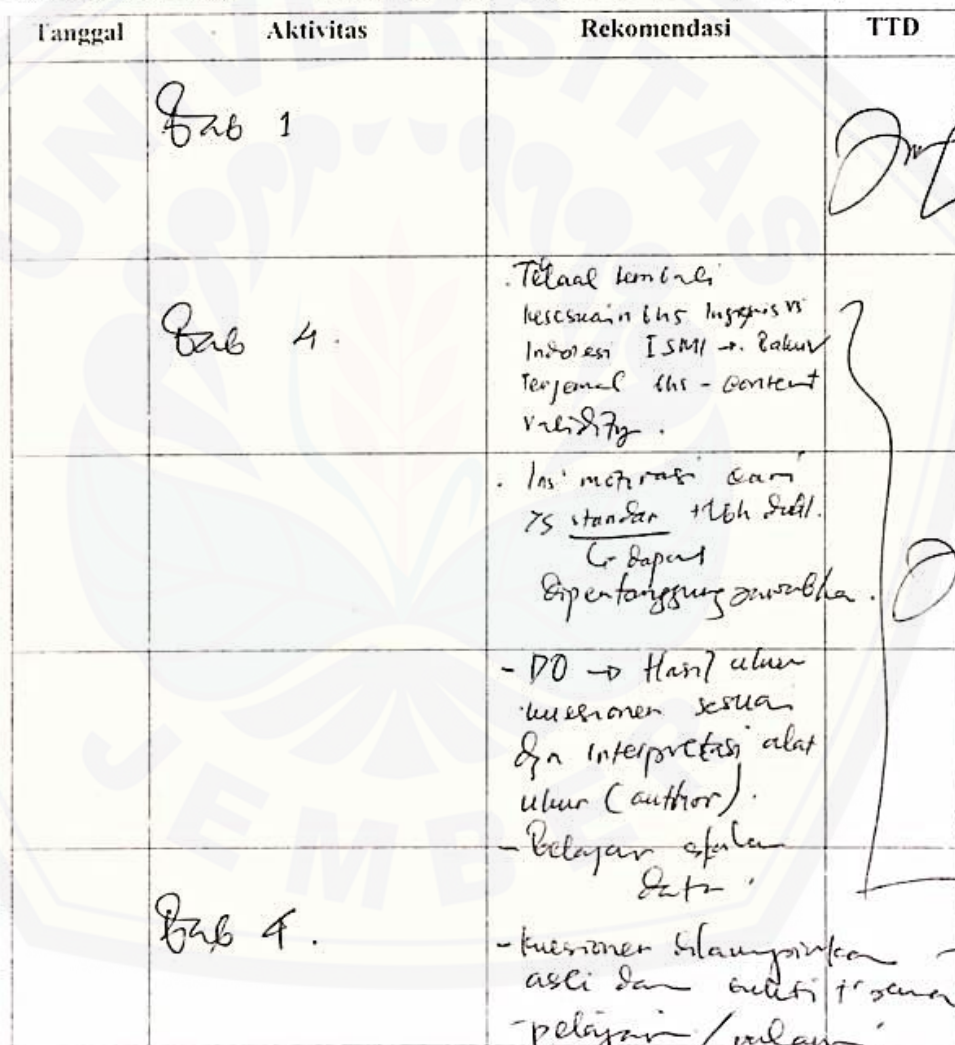 Tanggal Aktivitas Rekomendasi TTD
Bab 1
Bab 4.
. Telaal kembali
kesesuain bhs Inggris vs
Indonesi ISMI → Bakuv
Terjemal bhs - content
validity.
. Ins' motivasi cari
yg standar + lbh
↳ dapat
dipertanggung jawabka.
- DO → Hasil ukur
kuesioner sesuai
dgn interpretasi alat
ukur (author).
- Belajar
data.
Bab 4.
- kuesioner dilampirkan
asli dan bukti
- pelajari /
UNIVERSITAS
JEMBER